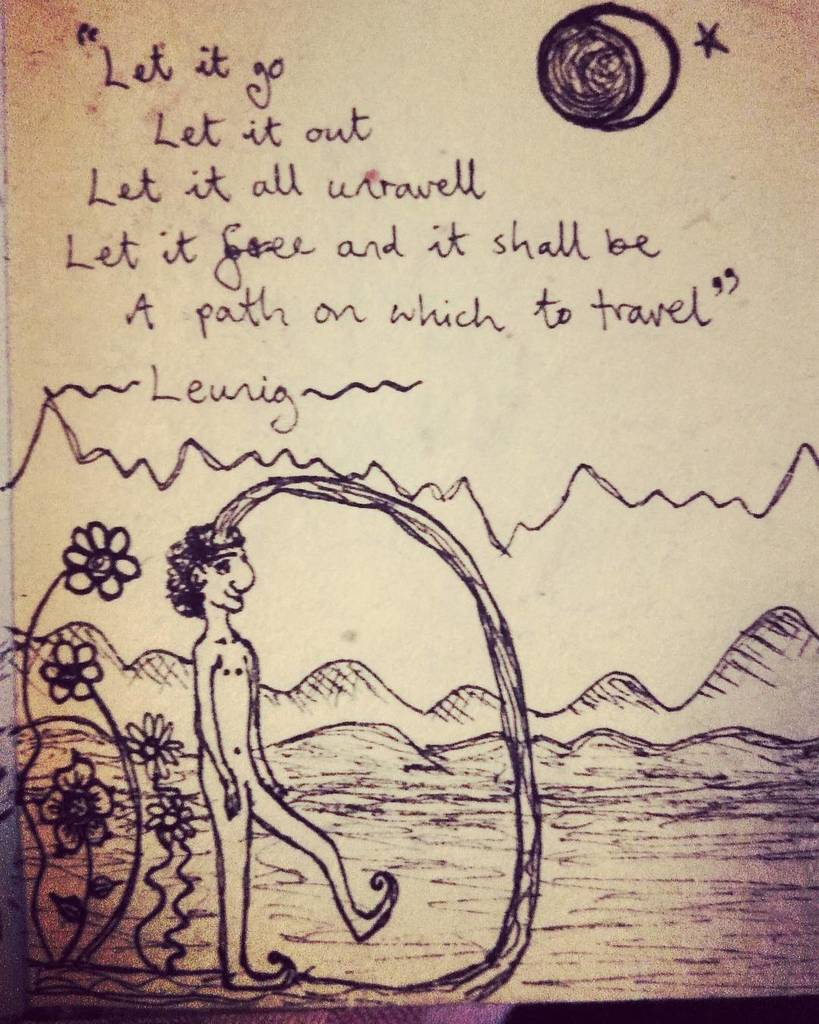 "Let it go
Let it out
Let it all unravell
Let it free and it shall be
A path on which to travel"
~Leunig~